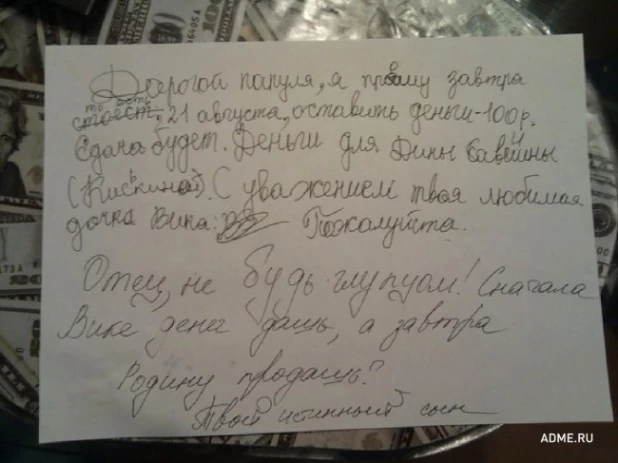 Дорогой папуля, я прошу завтра
то есть
стоест, 21 августа, оставить деньги-100р.
Сдача будет. Деньги для Дины Савейины
(Кискиной). С уважением твоя любимая
дочка Вика. Пожалуйста.
Отец, не будь глупцом! Сначала
Вике денег дашь, а завтра
Родину продашь?
Твой истинный сын
ADME.RU